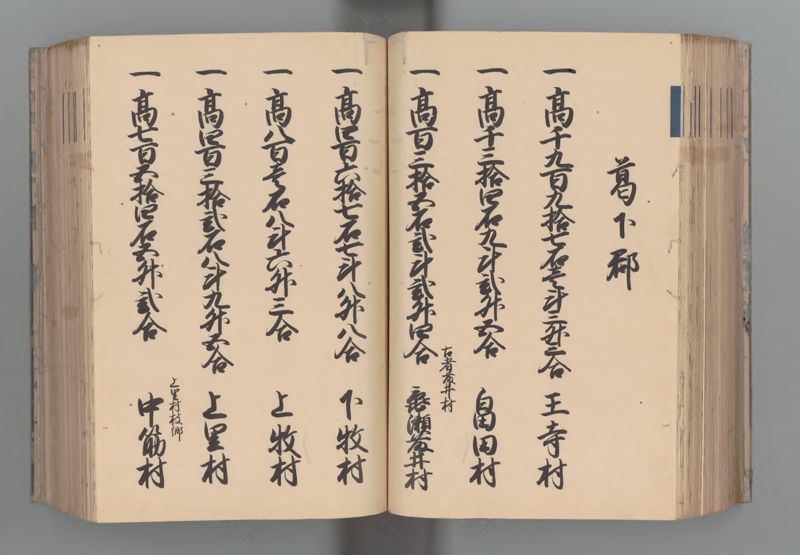 葛下郡
一高千九百九拾七石壱斗三升三合 王寺村
一高千三拾四石九斗弐升五合 畠田村
古者藤井村
一高百三拾五石弐斗弐升四合 瀬藤井村
一高四百六拾七石七斗八升八合 下牧村
一高八百壱石八斗六升三合 上牧村
一高四百三拾弐石八斗九升五合 上里村
上里村枝郷
一高七百五拾四石五升弐合 中筋村